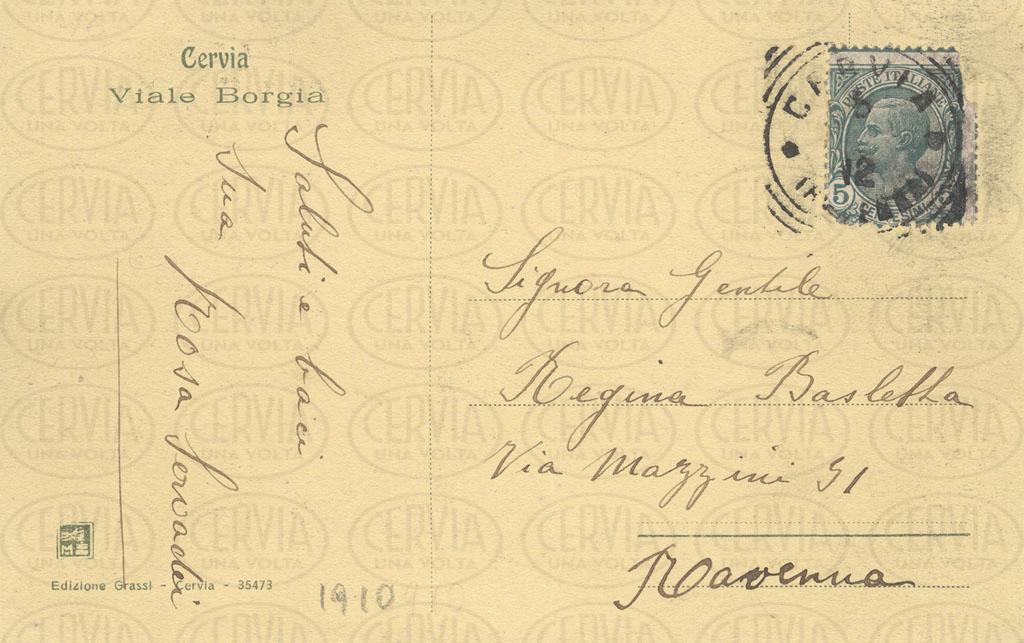 Cervia
Viale Borgia
Saluti e baci
Sua
Rosa Servadei
Edizione Grassi - Cervia - 35473
1910
CERVIA
12
POSTE ITALIANE
5
Signora Gentile
Regina Basletta
Via Mazzini 51
Ravenna
CERVIA
UNA VOLTA